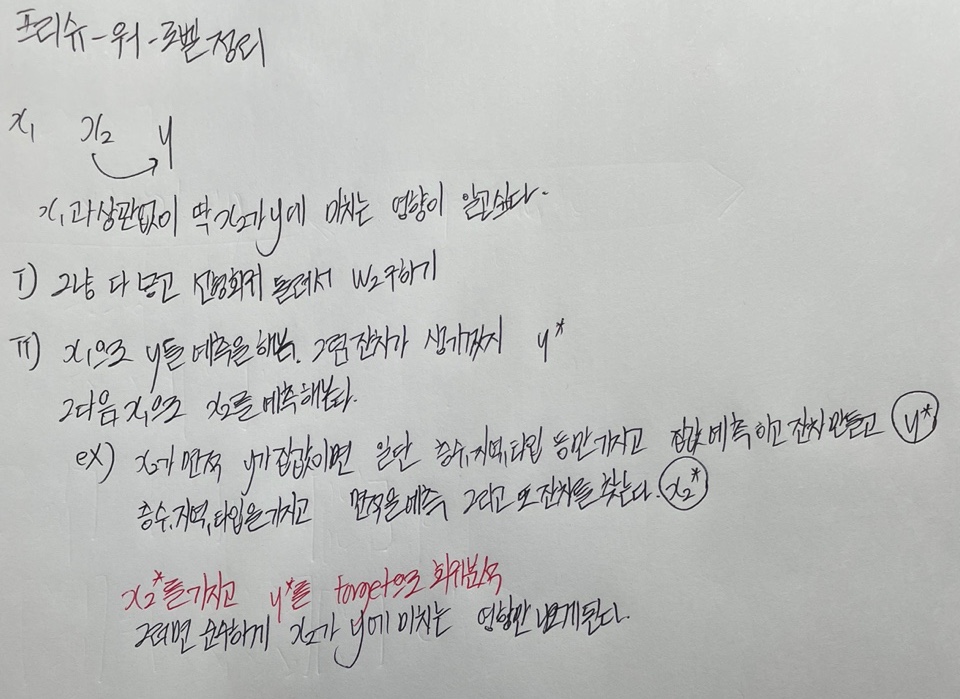 프리슈-워-로벨 정리
x₁ x₂ y
x₁과 상관없이 딱 x₂가 y에 미치는 영향이 알고싶다.
I) 그냥 다 넣고 선형회귀 돌려서 w₂구하기
II) x₁으로 y를 예측을 해봄. 그럼 잔차가 생기겠지 y*
그다음 x₁으로 x₂를 예측해본다.
ex) x₂가 면적 y가 집값이면 일단 층수,지역,타입 등만 가지고 집값 예측하고 잔차 만들고 y*
층수,지역,타입을 가지고 면적을 예측 그리고 또 잔차를 찾는다. x₂*
x₂*를 가지고 y*를 target으로 회귀분석
그러면 순수하게 x₂가 y에 미치는 영향만 남게된다.